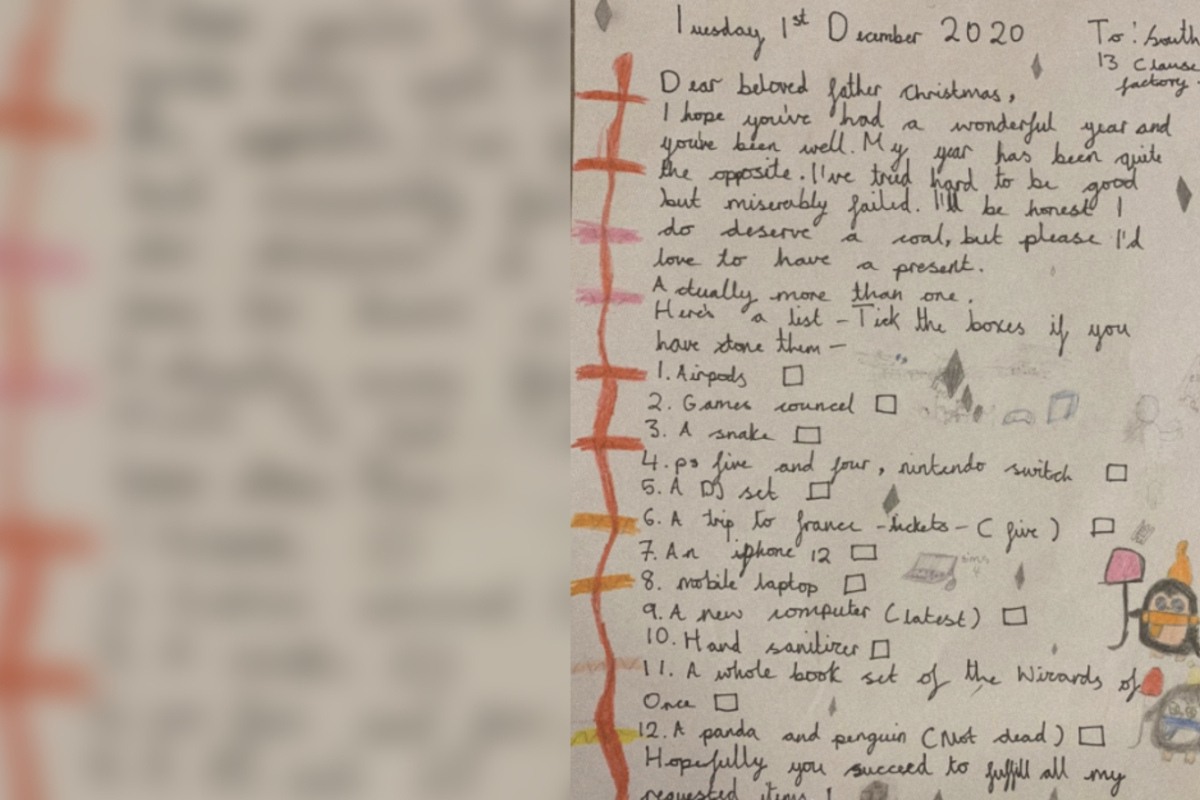 Tuesday 1st December 2020
To: South
13 Clause
factory
Dear beloved father Christmas,
I hope you've had a wonderful year and
you've been well. My year has been quite
the opposite. I've tried hard to be good
but miserably failed. I'll be honest I
do deserve a coal, but please I'd
love to have a present.
Actually more than one.
Here's a list - Tick the boxes if you
have done them -
1. Airpods
2. Games councel
3. A snake
4. ps five and four, nintendo switch
5. A DJ set
6. A trip to france - tickets - (five)
7. An iphone 12
8. mobile laptop
sims
4
9. A new computer (latest)
10. Hand sanitizer
11. A whole book set of the Wizards of
Once
12. A panda and penguin (Not dead)
Hopefully you succeed to fulfill all my
requested items!